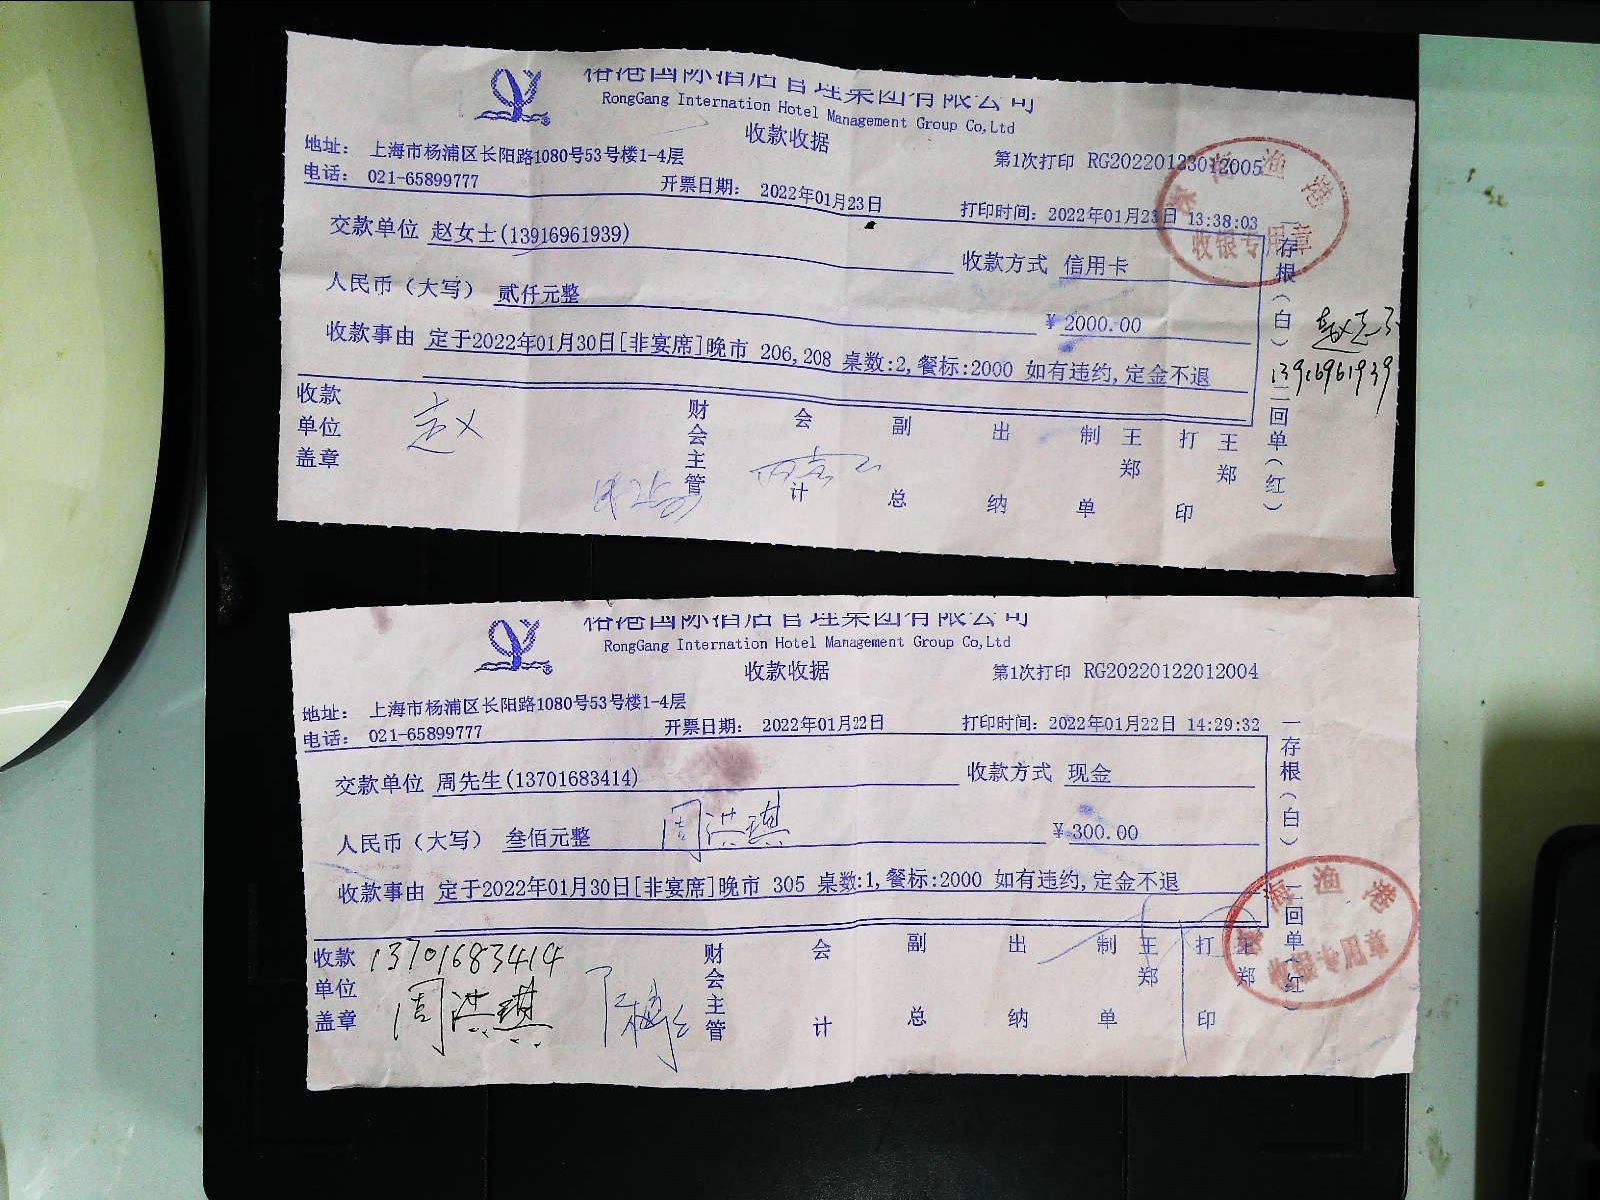 榕港国际酒店管理集团有限公司
RongGang Internation Hotel Management Group Co,Ltd
收款收据
地址： 上海市杨浦区长阳路1080号53号楼1-4层
第1次打印 RG20220123012005
电话： 021-65899777 开票日期： 2022年01月23日 打印时间：2022年01月23日 13:38:03
交款单位 赵女士(13916961939) 收款方式 信用卡
人民币（大写） 贰仟元整 ￥ 2000.00
收款事由 定于2022年01月30日[非宴席]晚市 206,208 桌数:2,餐标:2000 如有违约,定金不退
收款单位盖章 赵 财会主管 会计 副总 出纳 制单 王郑 打印 王郑
一存根（白）二回单（红）
渔港
收银专用章
13916961939
榕港国际酒店管理集团有限公司
RongGang Internation Hotel Management Group Co,Ltd
收款收据
第1次打印 RG20220122012004
地址： 上海市杨浦区长阳路1080号53号楼1-4层
电话： 021-65899777 开票日期： 2022年01月22日 打印时间：2022年01月22日 14:29:32
交款单位 周先生(13701683414) 收款方式 现金
人民币（大写） 叁佰元整 周洪琪 ￥ 300.00
收款事由 定于2022年01月30日[非宴席]晚市 305 桌数:1,餐标:2000 如有违约,定金不退
收款单位盖章 13701683414 财会主管 会计 副总 出纳 制单 王郑 打印 王郑
周洪琪
一存根（白）二回单（红）
海渔港
收银专用章